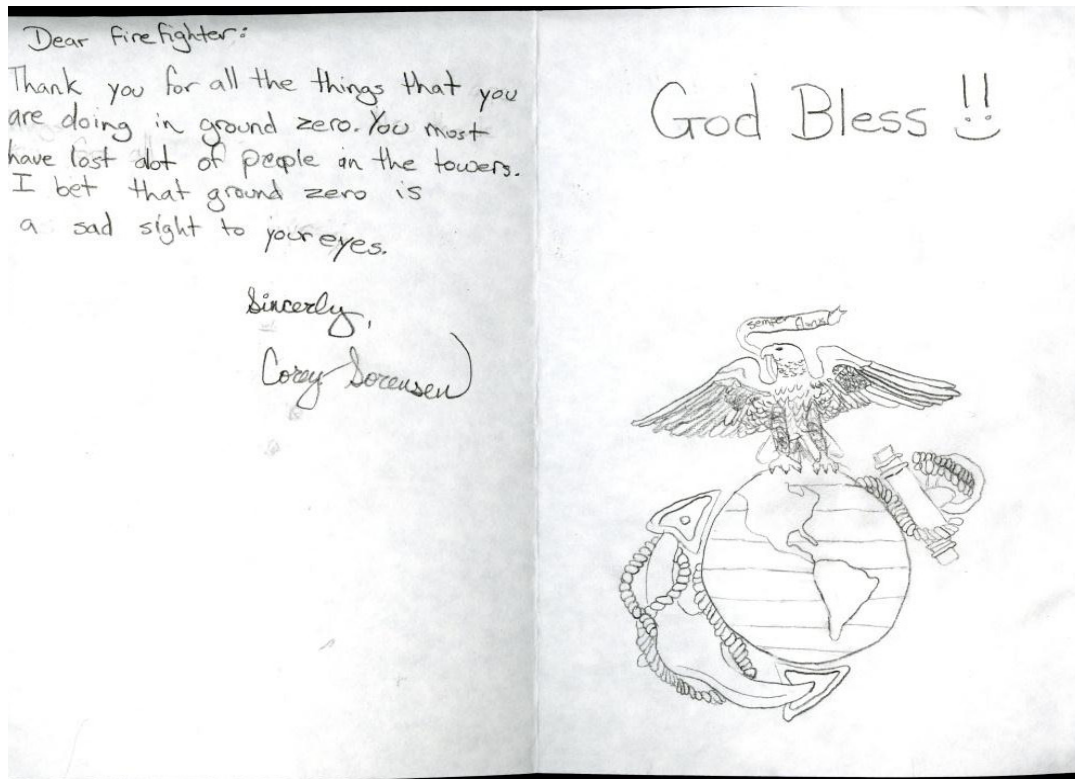 Dear firefighter:
Thank you for all the things that you
are doing in ground zero. You most
have lost alot of people in the towers.
I bet that ground zero is
a sad sight to your eyes.
Sincerly,
Corey Sorensen
God Bless !!
semper